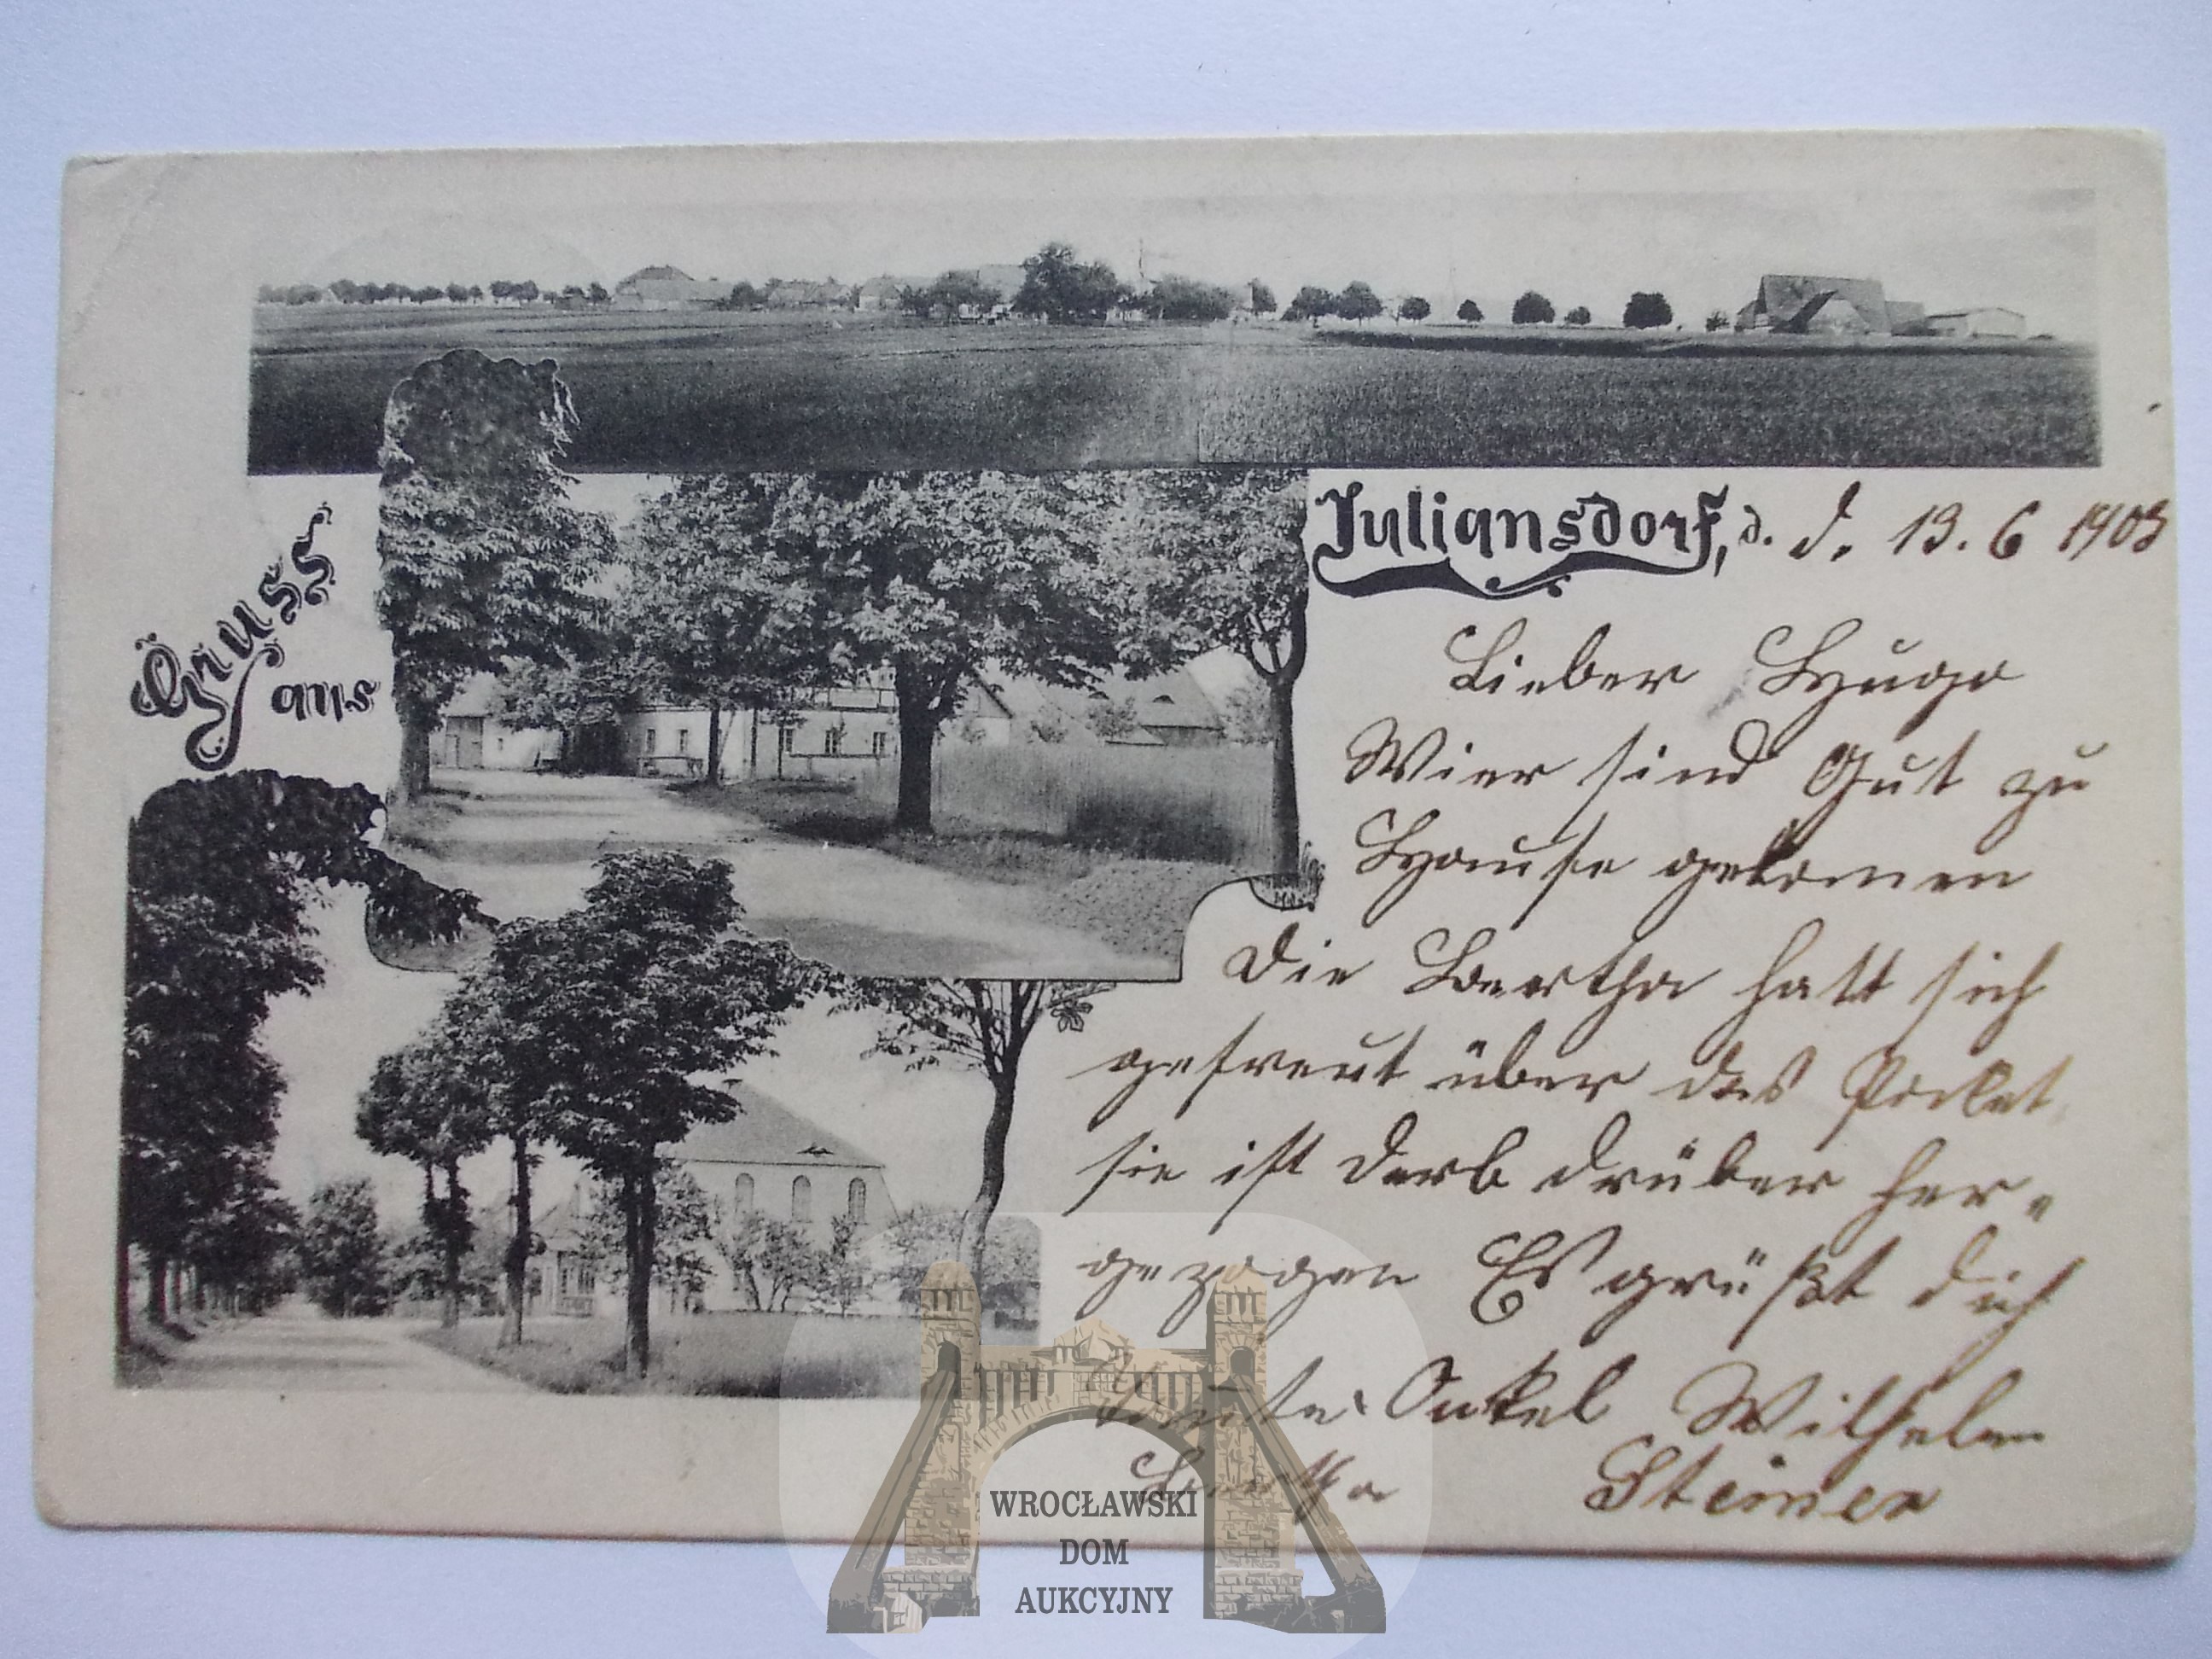 Gruss
aus
Juliansdorf, d. d. 13. 6 1903
Lieber Hugo
Wier sind Gut zu
Hause gekomen
Die Bertha hatt sich
gefreut über das Packet
sie ist derb drüber her„
gezogen Es grüßt dich
Onkel Wilhelm
Bertha Steiner
WROCŁAWSKI
DOM
AUKCYJNY